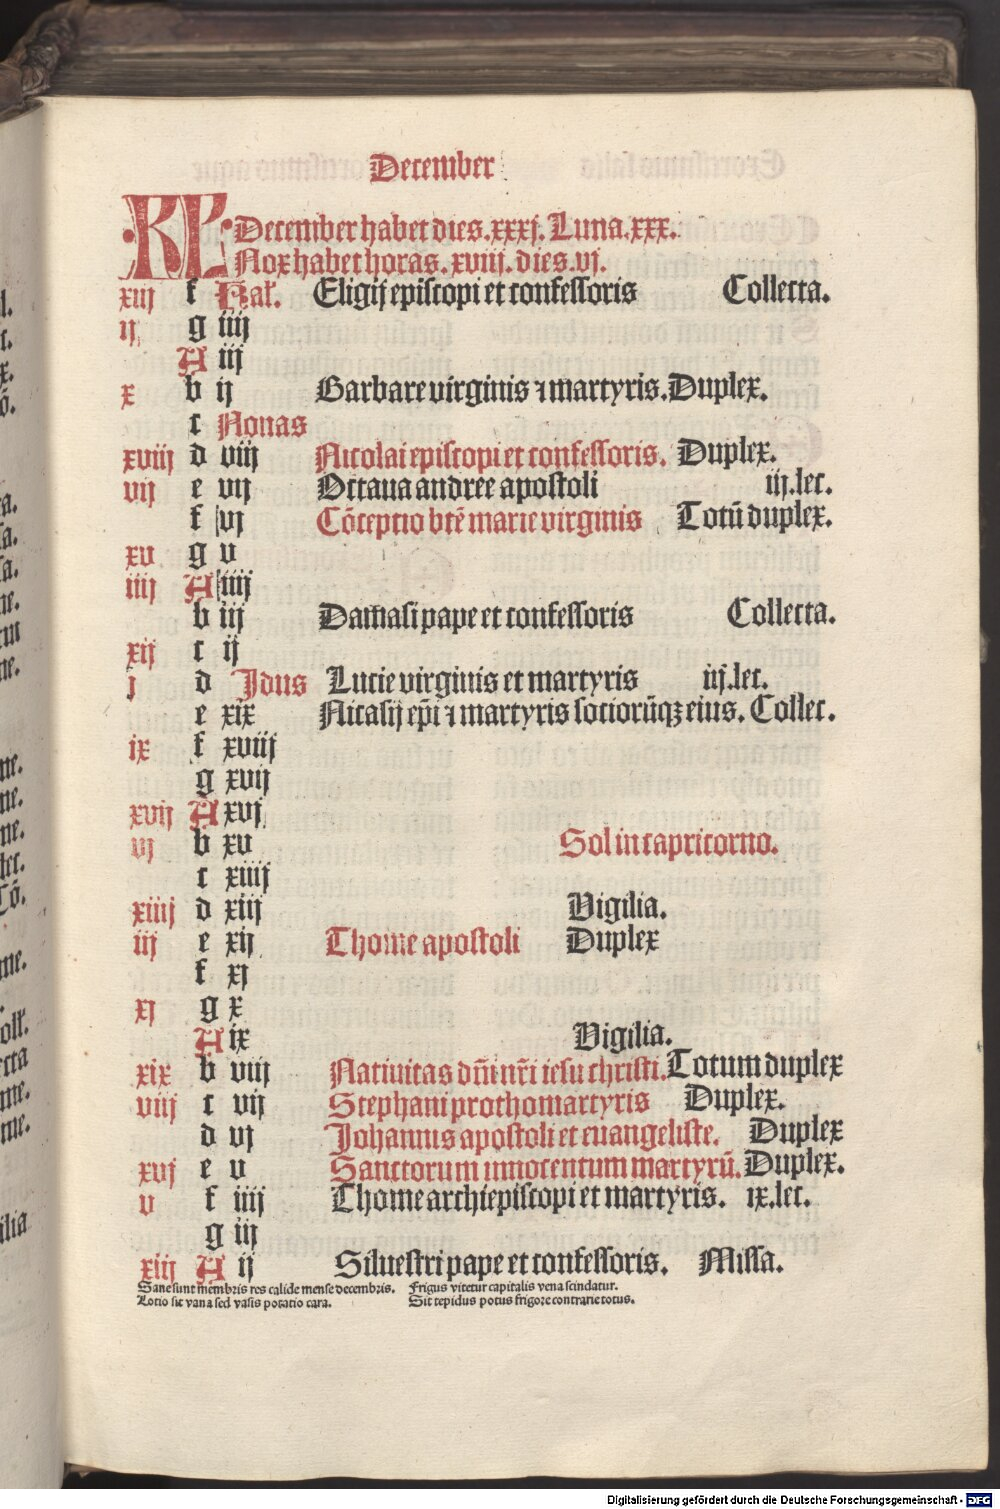 December
KL December habet dies .xxxj. Luna .xxx.
Nox habet horas . xviij . dies .vj.
xiij f Kal'. Eligij episcopi et confessoris Collecta.
ij g iiij
A iij
x b ij Barbare virginis ⁊ martyris. Duplex.
c Nonas
xviij d viij Nicolai episcopi et confessoris. Duplex.
vij e vij Octaua andree apostoli iij.lec.
f vj Cōceptio btē marie virginis Totū duplex.
xv g v
iiij A iiij
b iij Damasi pape et confessoris Collecta.
xij c ij
j d Jdus Lucie virginis et martyris iij.lec.
e xix Nicasij ep̄i ⁊ martyris sociorūqꝫ eius. Collec.
ix f xviij
g xvij
xvij A xvj
vj b xv Sol in capricorno.
c xiiij
xiiij d xiij Vigilia.
iij e xij Thome apostoli Duplex
f xj
xj g x
A ix Vigilia.
xix b viij Natiuitas dn̄i nr̄i iesu christi. Totum duplex
viij c vij Stephani prothomartyris Duplex.
d vj Johannis apostoli et euangeliste. Duplex
xvj e v Sanctorum innocentum martyrū. Duplex.
v f iiij Thome archiepiscopi et martyris. ix.lec.
g iij
xiij A ij Siluestri pape et confessoris. Missa.
Sane sunt membris res calide mense decembris. Frigus vitetur capitalis vena scindatur.
Lotio sit vana sed vasis potatio cara. Sit tepidus potus frigore contrarie totus.
Digitalisierung gefördert durch die Deutsche Forschungsgemeinschaft - DFG